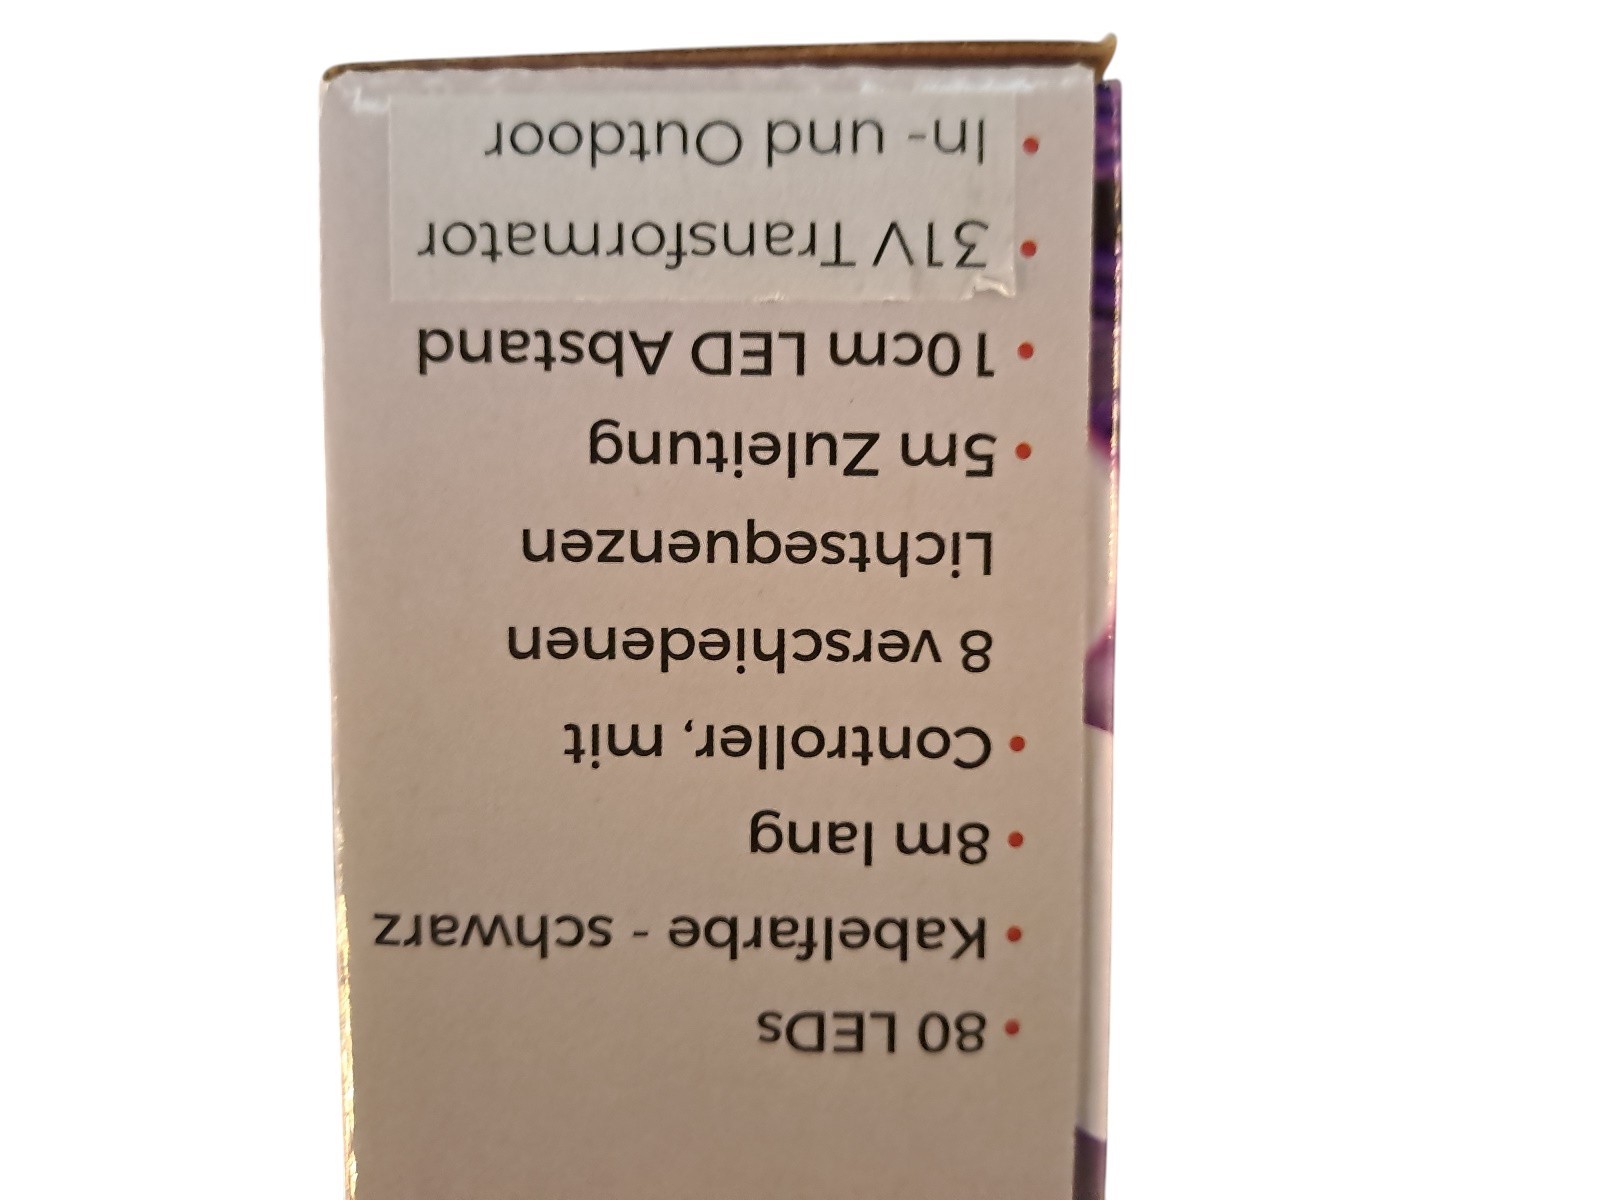 • 80 LEDs
• Kabelfarbe - schwarz
• 8m lang
• Controller, mit
8 verschiedenen
Lichtsequenzen
• 5m Zuleitung
• 10cm LED Abstand
• 31V Transformator
• In- und Outdoor